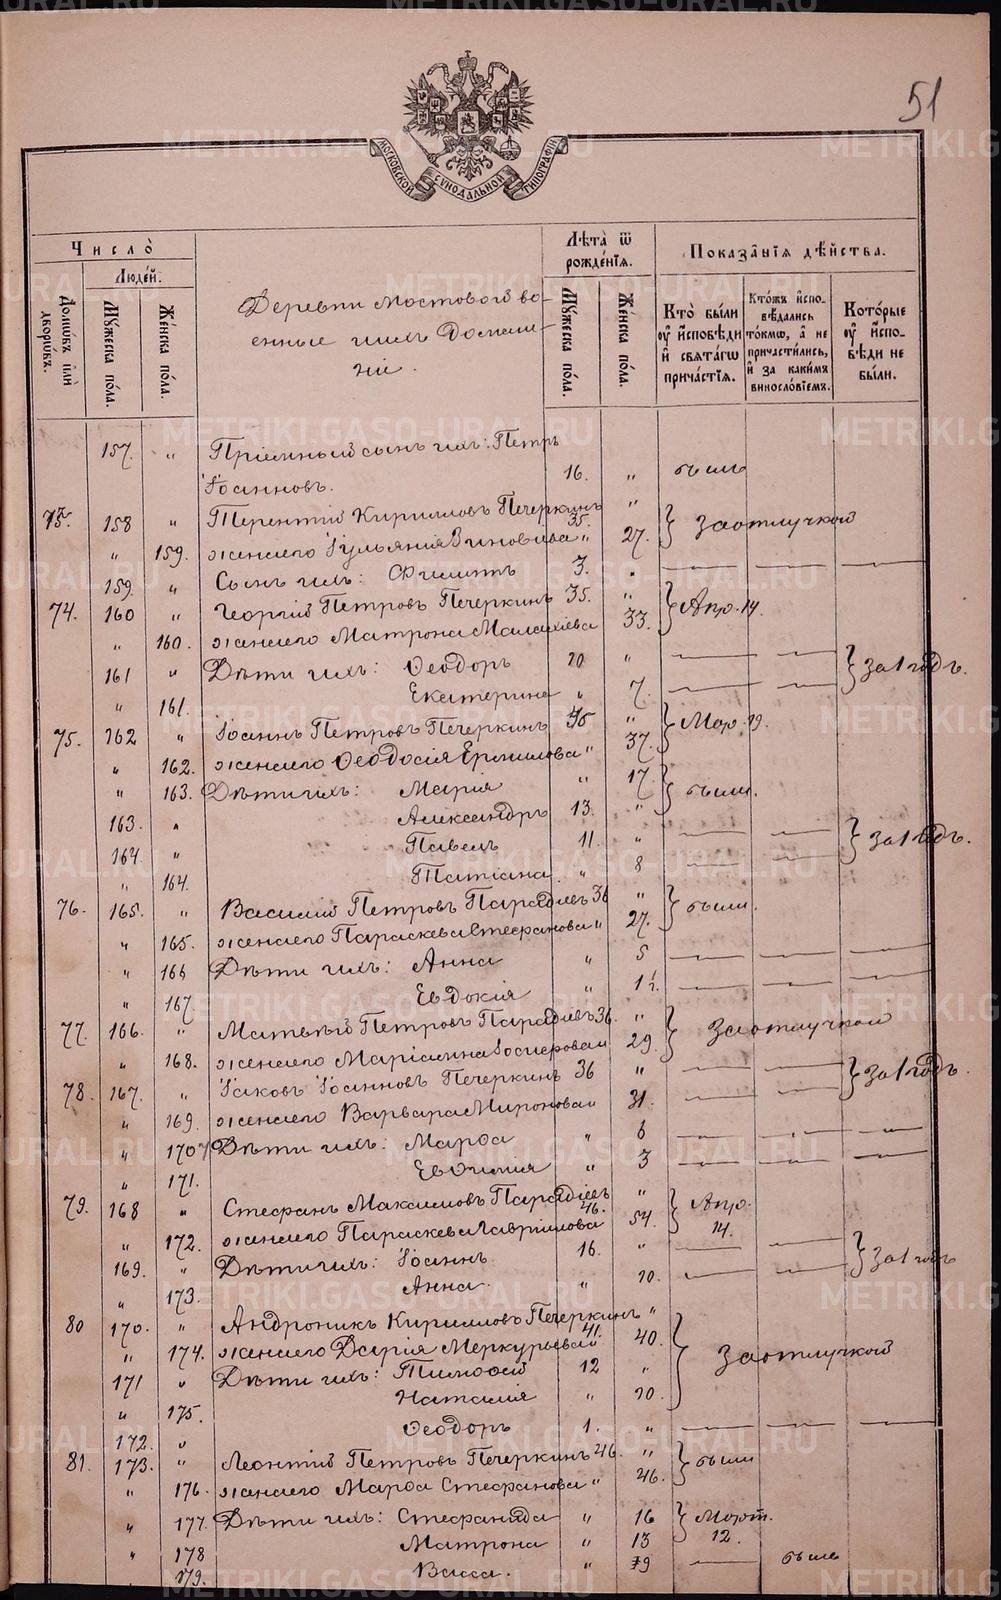 51
МОСКОВСКОЙ СѴНОДАЛЬНОЙ ТИПОГРАФІИ
Число̀
Людє́й.
Домѡ́въ и҆лѝ дворѡ́въ.
Мꙋ́жеска по́ла.
Же́нска по́ла.
Деревни Мостовой во-
енные и ихъ Домаш-
ніи.
Лѣ́та ѿ рожде́нїѧ.
Мꙋ́жеска по́ла.
Же́нска по́ла.
Показа̑нїѧ дѣ́йства.
Кто̀ бы́ли оу҆ и҆́споведи и҆ свѧта́гѡ прича́стїѧ.
Кто́жъ и҆спо- вѣ́дались то́кмѡ, а҆ не причасти́лись, и҆ за каки́мъ виносло́вїемъ.
Кото́рые оу҆ и҆́спо- вѣди не бы́ли.
157. " Пріемный сынъ ихъ: Петръ
Іоанновъ. 16. " были
75. 158 " Терентій Кирилловъ Печеркинъ 35. " } За отлучкой
" 159. жена его Іульянія Зиновіева " 27.
159. " Сынъ ихъ: Филиппъ 3. "
74. 160 " Георгій Петровъ Печеркинъ 35. " } Апр. 14.
" 160. жена его Матрона Малахіева 33.
161 " Дѣти ихъ: Ѳеодоръ 10 " } за 1 годъ.
" 161. Екатерина " 7.
75. 162 " Іоаннъ Петровъ Печеркинъ 35 " } Мар. 19.
" 162. жена его Ѳеодосія Ермилова " 37.
" 163. Дѣти ихъ: Марія " 17 } были.
163. " Александръ 13. "
164. " Павелъ 11. " } за 1 годъ.
" 164. Татіана " 8
76. 165. " Василій Петровъ Парадѣевъ 36 " } были.
" 165. жена его Параскева Стефанова " 27.
" 166 Дѣти ихъ: Анна " 5
" 167. Евдокія " 1½.
77. 166. " Матвѣй Петровъ Парадѣевъ 36. " } За отлучкой
" 168. жена его Маріамна Іосифовая 29.
78. 167. " Іаковъ Іоанновъ Печеркинъ 36 " } за 1 годъ.
" 169. жена его Варвара Мироновая 31.
" 170 Дѣти ихъ: Марѳа " 6
" 171. Евѳимія " 3
79. 168 " Стефанъ Максимовъ Парадѣевъ 46. " } Апр. 14.
" 172. жена его Параскева Гавриилова 54.
169. " Дѣти ихъ: Іоаннъ 16. " } за 1 годъ
" 173. Анна " 10.
80 170. " Андроникъ Кирилловъ Печеркинъ 41. " } За отлучкой
" 174. жена его Дарія Меркурьевай 40.
171 " Дѣти ихъ: Тимоѳей 12 "
" 175. Наталія " 10.
172. " Ѳеодоръ 1. "
81. 173. " Леонтій Петровъ Печеркинъ 46. " } были
" 176. жена его Марѳа Стефанова " 46.
" 177. Дѣти ихъ: Стефанида " 16 } Март. 12.
" 178 Матрона " 13
179. Васса. " 9 были
METRIKI.GASO-URAL.RU